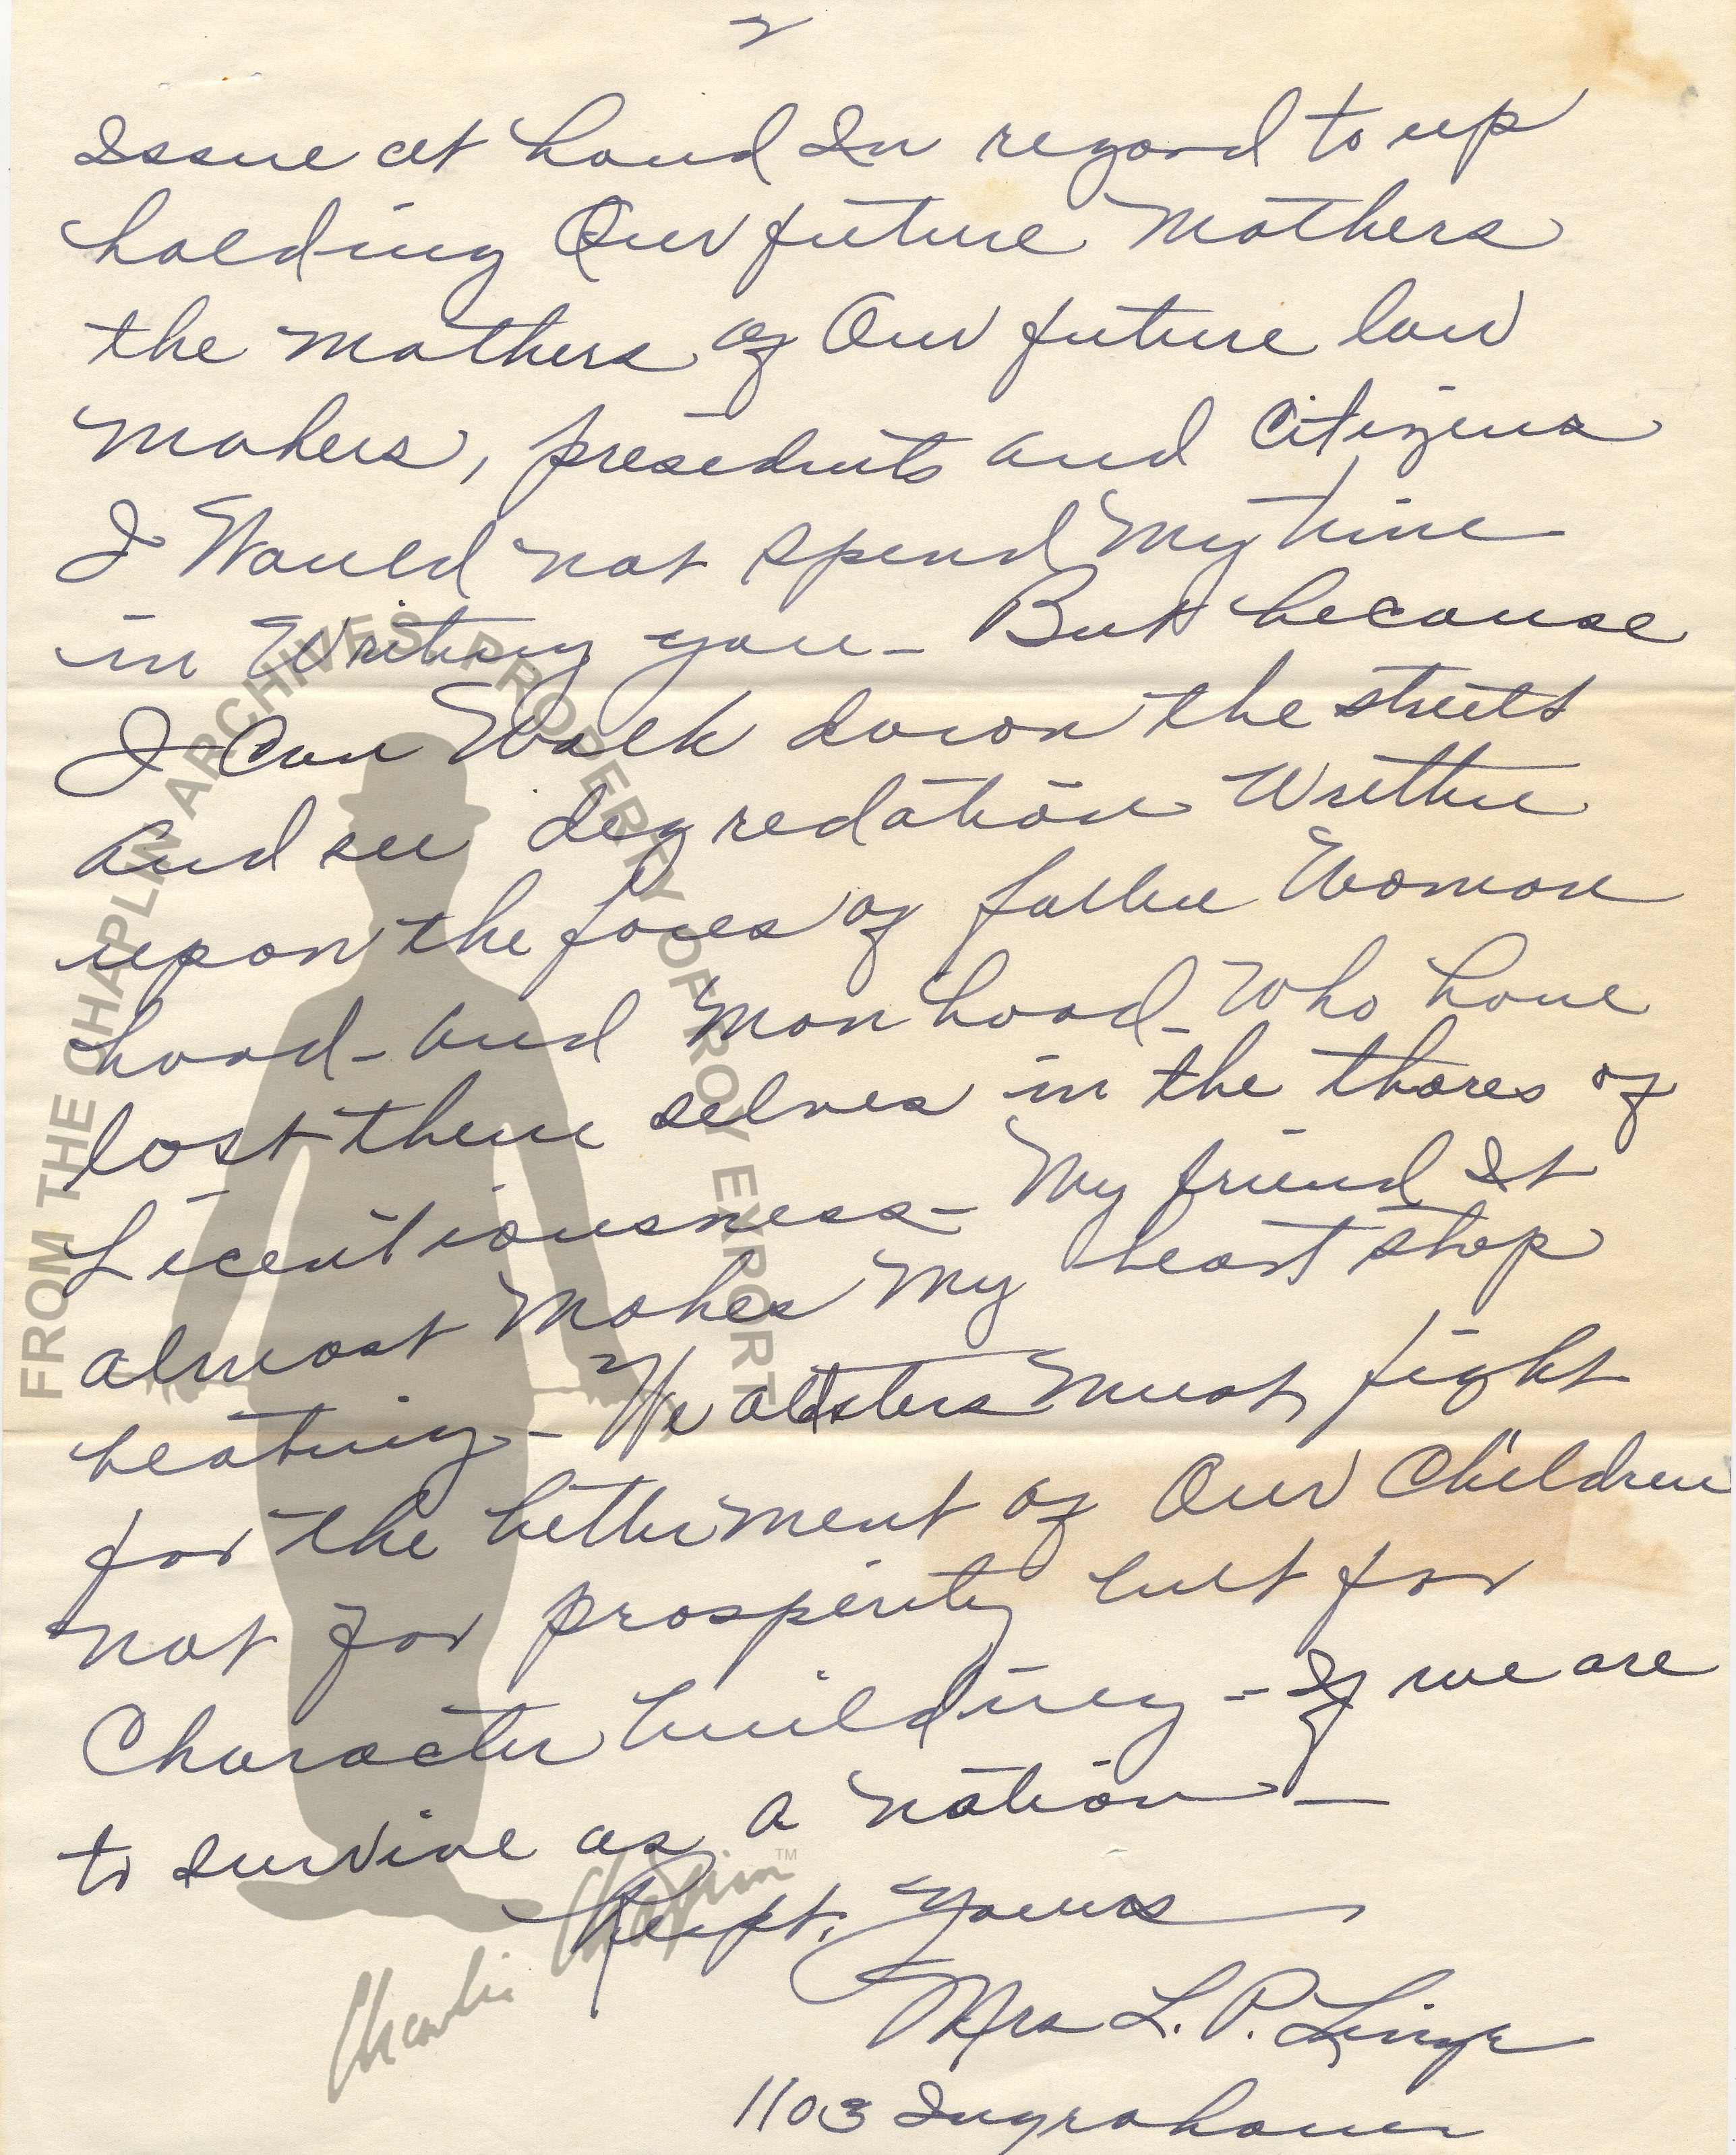 2
Issue at hand In regard to up
holding Our future Mothers
the mothers of Our future law
makers, presedents and Citizens
I Would not spend My time
in Writing you - But because
I Can Walk down the streets
and see degredation Written
upon the faces of fallen Woman
hood - and Manhood - Who have
lost them selves in the thores of
Licentiousness - My friend It
almost Makes My heart stop
beating - We must fight
for the betterment of Our Children
not for prosperity but for
Character building - If we are
to survive as a Nation -
Respt. Yours
Mrs L. P.
1103 Ingraham
FROM THE CHAPLIN ARCHIVES PROPERTY OF ROY EXPORT
Charlie Chaplin™